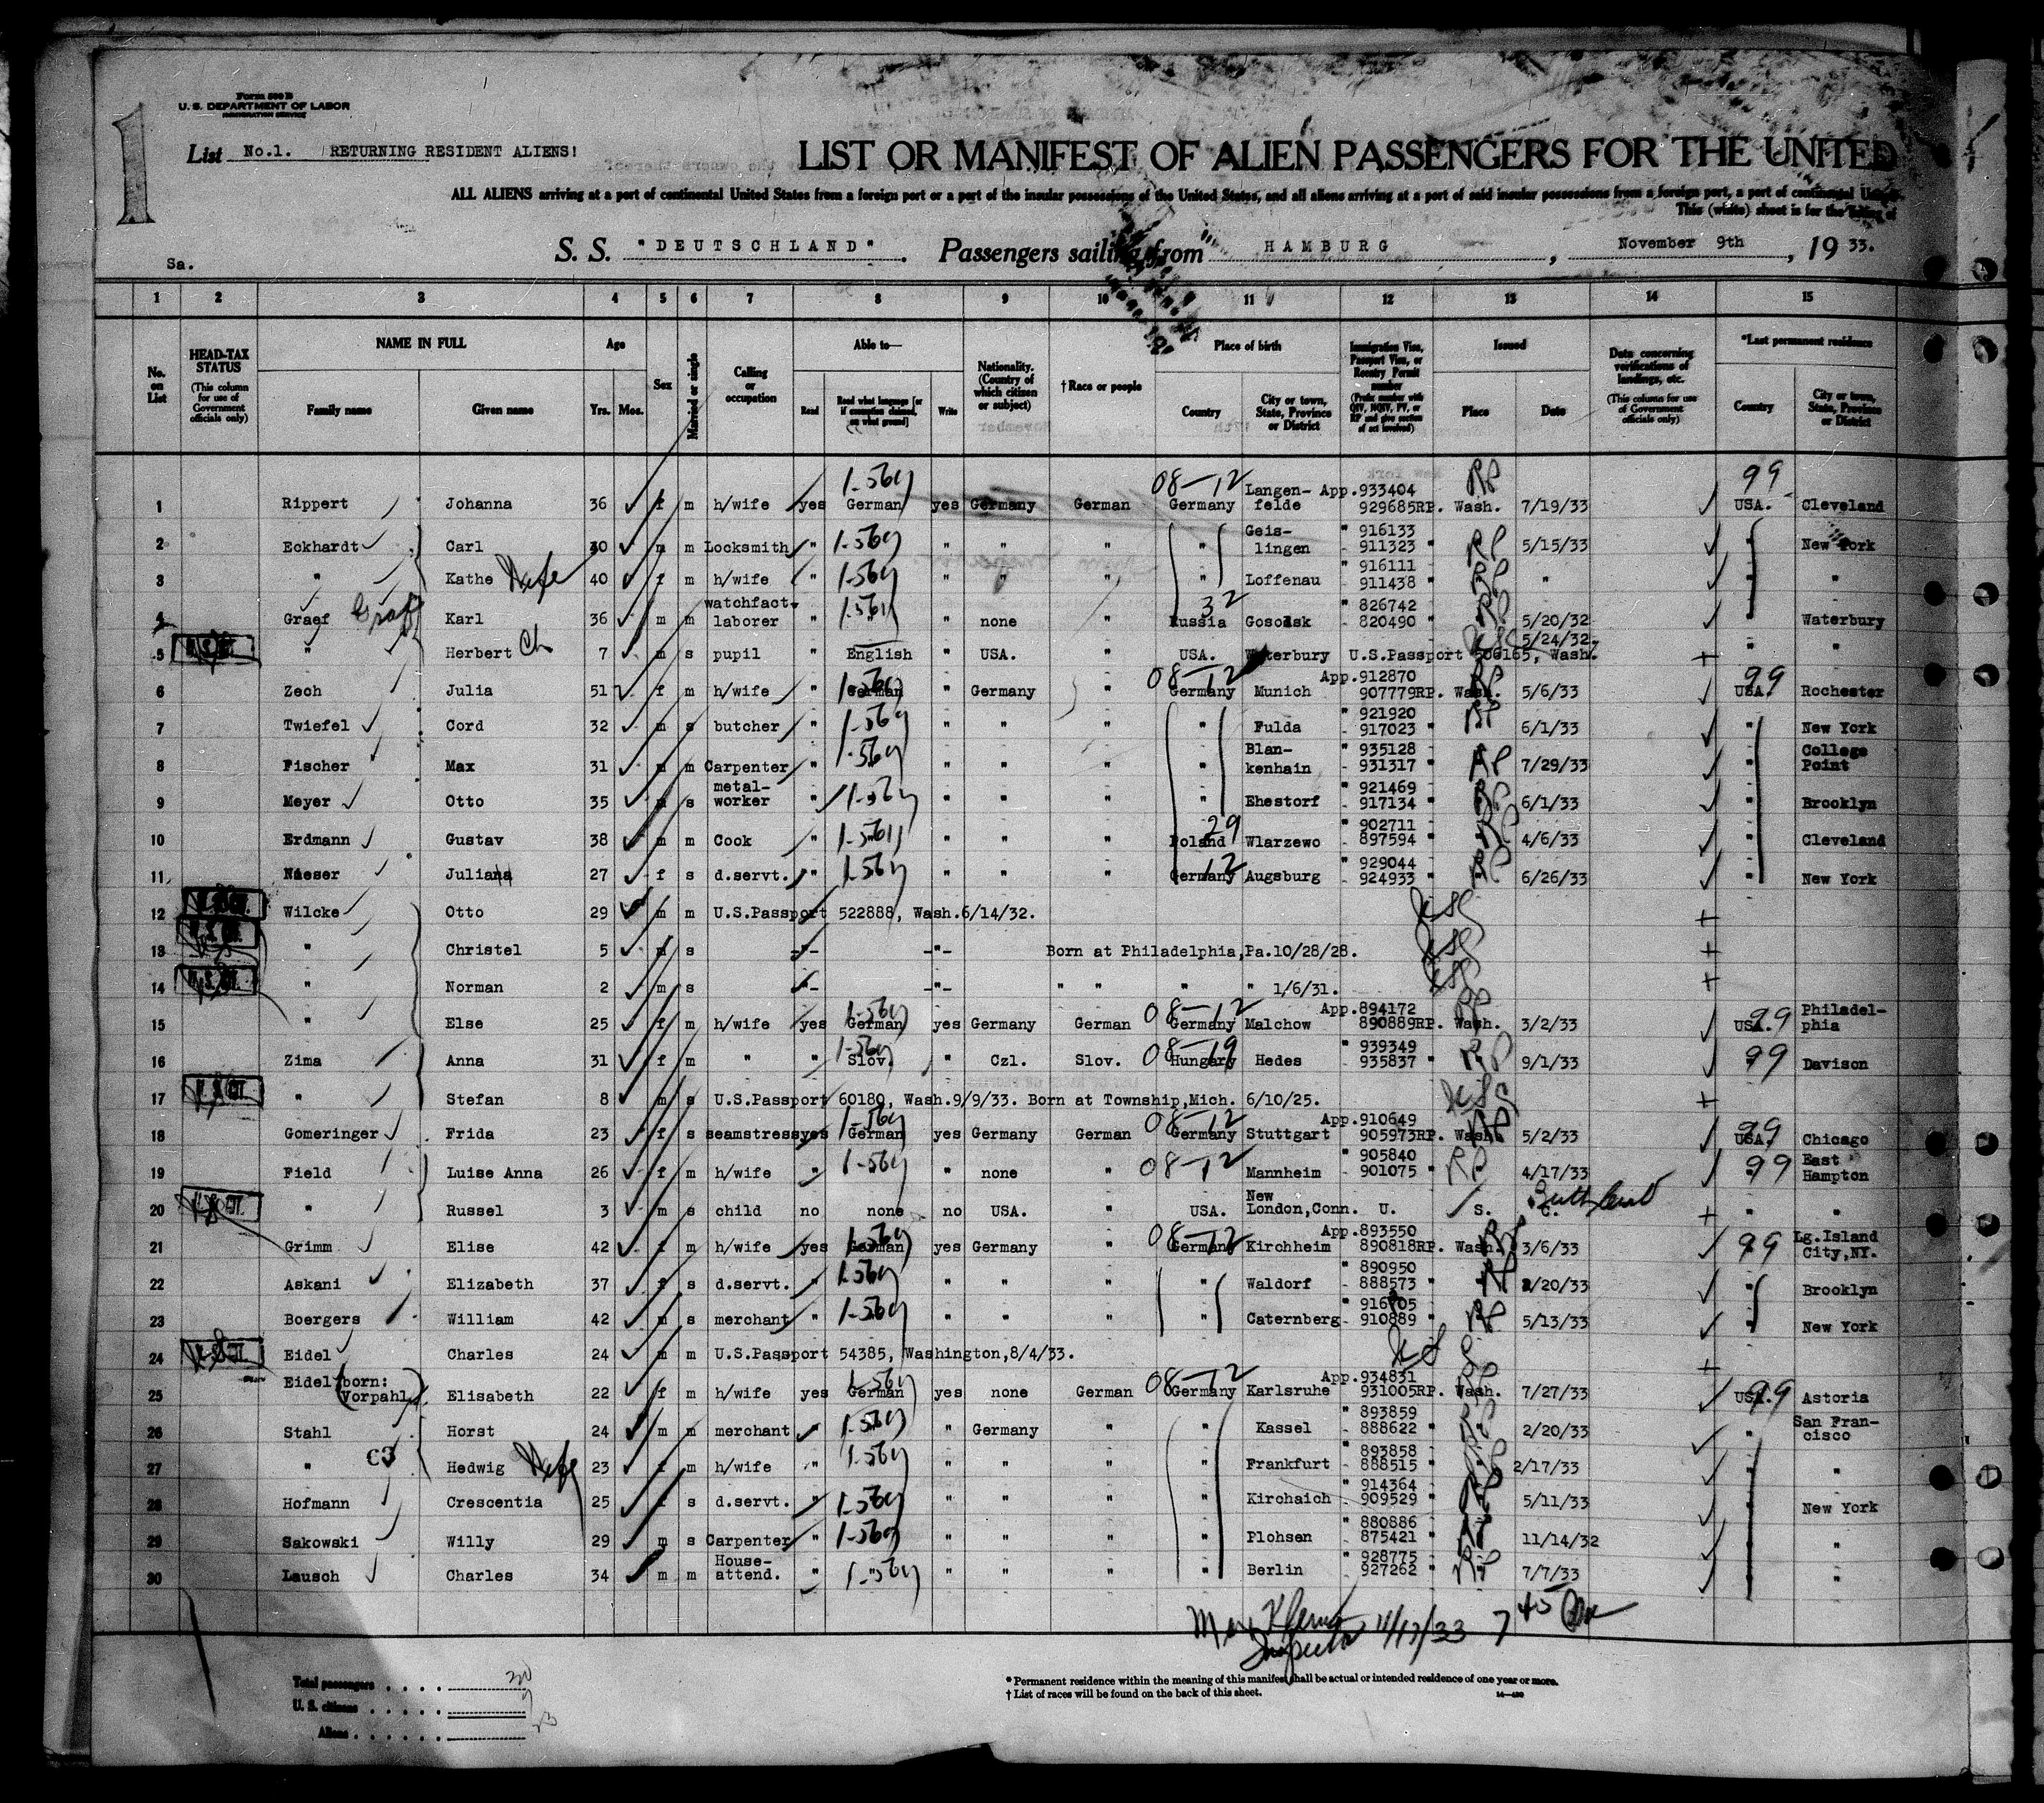 1
Form 500 B
U. S. DEPARTMENT OF LABOR
IMMIGRATION SERVICE
List No.1. RETURNING RESIDENT ALIENS!
LIST OR MANIFEST OF ALIEN PASSENGERS FOR THE UNITED
ALL ALIENS arriving at a port of continental United States from a foreign port or a port of the insular possessions of the United States, and all aliens arriving at a port of said insular possessions from a foreign port, a port of continental
This (white) sheet is for the listing of
Sa.
S. S. "DEUTSCHLAND". Passengers sailing from HAMBURG, November 9th, 19 33.
1 2 3 4 5 6 7 8 9 10 11 12 13 14 15
No. on List
HEAD-TAX STATUS (This column for use of Government officials only)
NAME IN FULL Family name Given name
Age Yrs. Mos.
Sex
Married or single
Calling or occupation
Able to— Read Read what language [or if exemption claimed, on what ground] Write
Nationality. (Country of which citizen or subject)
† Race or people
Place of birth Country City or town, State, Province or District
Immigration Visa, Passport Visa, or Reentry Permit number (Prefix number with QIV, NQIV, PV, or RP and give section of act involved)
Issued Place Date
Data concerning verifications of landings, etc. (This column for use of Government officials only)
*Last permanent residence Country City or town, State, Province or District
1 Rippert Johanna 36 f m h/wife yes German yes Germany German 08-12 Germany Langenfelde App.933404 929685RP. Wash. 7/19/33 99 USA. Cleveland
2 Eckhardt Carl 30 m m Locksmith " " " " " Geislingen " 916133 911323 " RP 5/15/33 " New York
3 " Kathe Wife 40 f m h/wife " " " " " Loffenau " 916111 911438 " RP " " "
4 Graef Graff Karl 36 m m watchfact. laborer " " " none " 32 Russia Gosodsk " 826742 820490 " 5/20/32 " Waterbury
5 " Herbert Ch 7 m s pupil " English " USA. USA. Waterbury U.S.Passport 506165, Wash. 5/24/32. " "
6 Zech Julia 51 f m h/wife " German " Germany " 08-12 Germany Munich App.912870 907779RP. Wash. 5/6/33 99 USA. Rochester
7 Twiefel Cord 32 m s butcher " " " " " Fulda " 921920 917023 " 6/1/33 " New York
8 Fischer Max 31 m m Carpenter " " " " " Blankenhain " 935128 931317 " RP 7/29/33 " College Point
9 Meyer Otto 35 m s metalworker " " " " " Ehestorf " 921469 917134 " 6/1/33 " Brooklyn
10 Erdmann Gustav 38 m m Cook " " " " 29 Poland Wlarzewo " 902711 897594 " 4/6/33 " Cleveland
11 Nieser Juliana 27 f s d.servt. " " " " 12 Germany Augsburg " 929044 924933 " 6/26/33 " New York
12 Wilcke Otto 29 m m U.S.Passport 522888, Wash.6/14/32.
13 " Christel 5 m s -"- -"- Born at Philadelphia,Pa.10/28/28.
14 " Norman 2 m s -"- -"- " " " " 1/6/31.
15 " Else 25 f m h/wife yes German yes Germany German 08-12 Germany Malchow App.894172 890889RP. Wash. 3/2/33 99 USA. Philadelphia
16 Zima Anna 31 f m " " Slov. " Czl. Slov. 08-19 Hungary Hedes " 939349 935837 " RP 9/1/33 99 Davison
17 " Stefan 8 m s U.S.Passport 60180, Wash.9/9/33. Born at Township,Mich. 6/10/25.
18 Gomeringer Frida 23 f s seamstress yes German yes Germany German 08-12 Germany Stuttgart App.910649 905973RP. Wash. 5/2/33 99 USA. Chicago
19 Field Luise Anna 26 f m h/wife " " none " 08-12 Mannheim " 905840 901075 " RP 4/17/33 99 East Hampton
20 " Russel 3 m s child no none no USA. USA. New London,Conn. U. S. C. " "
21 Grimm Elise 42 f m h/wife yes German yes Germany 08-12 Germany Kirchheim App.893550 890818RP. Wash. 3/6/33 99 Lg.Island City,NY.
22 Askani Elizabeth 37 f s d.servt. " " " " " Waldorf " 890950 888573 " 2/20/33 Brooklyn
23 Boergers William 42 m s merchant " " " " " Caternberg 910889 " RP 5/13/33 " New York
24 Eidel Charles 24 m m U.S.Passport 54385, Washington,8/4/33.
25 Eidel (born: Vorpahl) Elisabeth 22 f m h/wife yes German yes none German 08-12 Germany Karlsruhe App.934831 931005RP. Wash. 7/27/33 99 USA. Astoria
26 Stahl Horst 24 m m merchant " " Germany " " Kassel " 893859 888622 " 2/20/33 " San Francisco
27 " Hedwig Wife 23 f m h/wife " " " " " Frankfurt " 893858 888515 " 2/17/33 " "
28 Hofmann Crescentia 25 f s d.servt. " " " " " Kirchaich " 914364 909529 " 5/11/33 " New York
29 Sakowski Willy 29 m s Carpenter " " " " " Plohsen " 880886 875421 " 11/14/32 " "
30 Lausch Charles 34 m m House-attend. " " " " " Berlin " 928775 927262 " 7/7/33 " "
Inspector 11/17/33 7 45
Total passengers . . . . . 30
U. S. citizens . . . . . 7
Aliens . . . . . . 23
* Permanent residence within the meaning of this manifest shall be actual or intended residence of one year or more.
† List of races will be found on the back of this sheet.